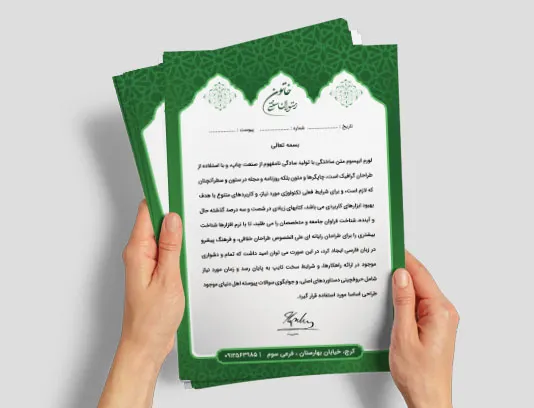 خاتون
رستوران سنتی
تاریخ : .................... شماره : .................... پیوست : ....................
بسمه تعالی
لورم ایپسوم متن ساختگی با تولید سادگی نامفهوم از صنعت چاپ، و با استفاده از
طراحان گرافیک است، چاپگرها و متون بلکه روزنامه و مجله در ستون و سطرآنچنان
که لازم است، و برای شرایط فعلی تکنولوژی مورد نیاز، و کاربردهای متنوع با هدف
بهبود ابزارهای کاربردی می باشد، کتابهای زیادی در شصت و سه درصد گذشته حال
و آینده، شناخت فراوان جامعه و متخصصان را می طلبد، تا با نرم افزارها شناخت
بیشتری را برای طراحان رایانه ای علی الخصوص طراحان خلاقی، و فرهنگ پیشرو
در زبان فارسی ایجاد کرد، در این صورت می توان امید داشت که تمام و دشواری
موجود در ارائه راهکارها، و شرایط سخت تایپ به پایان رسد و زمان مورد نیاز
شامل حروفچینی دستاوردهای اصلی، و جوابگوی سوالات پیوسته اهل دنیای موجود
طراحی اساسا مورد استفاده قرار گیرد.
کرج، خیابان بهارستان ، فرعی سوم | ۰۹۱۲۵۶۳۹۸۵